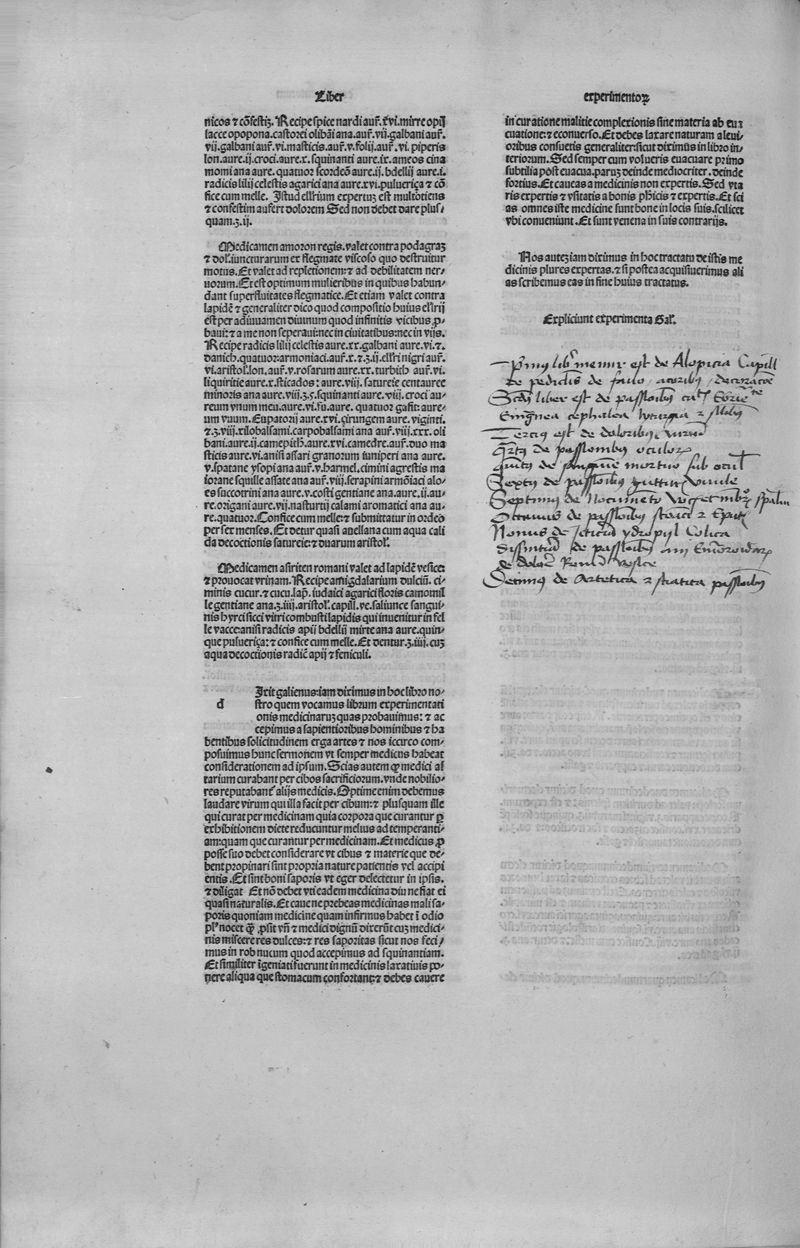 Liber
nicos ⁊ cōfestiʒ. Recipe spice nardi auř. xvi. mirre opij
lacce opopona. castorei olibāi ana. auř. vij. galbani auř.
vij. galbani auř. vi. masticis. auř. v. folij. auř. vi. piperis
lon. aure. ij. croci. aure. x. squinanti aure. ix. ameos cina
momi ana aure. quatuor scordeō aure. ij. bdellij aure. i.
radicis lilij celestis agarici ana aure. xvi. pulueriça ⁊ cō
fice cum melle. Istud elľium expertuʒ est multotiens
⁊ confestim aufert dolorem Sed non debet dare plus/
quam. ʒ. ij.
Medicamen amoron regis. valet contra podagraʒ
⁊ dol. iuncturarum ex flegmate viscoso quo destruitur
motus. Et valet ad repletionem: ⁊ ad debilitatem ner/
uorum. Et est optimum mulieribus in quibus habun/
dant superfluitates flegmatice. Et etiam valet contra
lapidē ⁊ generaliter dico quod compositio huius elľrij
est per adiuuamen diuinum quod infinitis vicibus ꝓ/
baui: ⁊ a me non seperaui: nec in ciuitatibus: nec in vijs.
Recipe radicis lilij celestis aure. xx. galbani aure. vi. ⁊.
danich. quatuor: armoniaci. auř. x. ⁊. ʒ. ij. elľri nigri auř.
vi. aristol. lon. auř. v. rosarum aure. xx. turbith auř. vi.
liquiritie aure. x. sticados: aure. viij. satureie centauree
minoris ana aure. viij. ʒ. s. squinanti aure. viij. croci au/
reum vnum meu. aure. vi. fu. aure. quatuor gafit: aure/
um vnum. Eupatorij aure. xvi. çirungem aure. viginti.
⁊. ʒ. viij. xilobalsami. carpobalsami ana auř. viij. xxx. oli
bani. aure. ij. camepithʒ. aure. xvi. camedre. auř. duo ma
sticis aure. vi. anisi assari granorum iuniperi ana aure.
v. spatane ysopi ana auř. v. harmel. cimini agrestis ma
iorane squille assate ana auř. viij. serapini armōiaci alo/
es saccotrini ana aure. v. costi gentiane ana. aure. ij. au/
re. origani aure. vij. nasturtij calami aromatici ana au/
re. quatuor. Confice cum melle: ⁊ submittatur in ordeo
per sex menses. Et detur quasi auellana cum aqua cali
da decoctionis satureie: ⁊ duarum aristol.
Medicamen asiriten romani valet ad lapidē vesice:
⁊ prouocat vrinam. Recipe amigdalarium dulciū. ci/
minis cucur. ⁊ cucu. lap. iudaici agarici floris camomil
le gentiane ana. ʒ. iiij. aristol. capill. ve. saliunce sangui/
nis hyrci sicci vitri combusti lapidis qui inuenitur in fel
le vacce: anisi radicis apij bdellij mirte ana aure. quin/
que pulueriça: ⁊ confice cum melle. Et dentur. ʒ. iiij. cuʒ
aqua decoctionis radicē apij ⁊ feniculi.
d Ixit galienus: iam diximus in hoc libro no/
stro quem vocamus librum experimentati
onis medicinaruʒ quas probauimus: ⁊ ac
cepimus a sapientioribus hominibus ⁊ ha
bentibus solicitudinem erga artes ⁊ nos iccirco com/
posuimus hunc sermonem vt semper medicus habeat
considerationem ad ipsum. Scias autem ꝙ medici al
tarium curabant per cibos sacrificiorum. vnde nobilio/
res reputabant alijs medicis. Optime enim debemus
laudare virum qui illa facit per cibum: ⁊ plusquam ille
qui curat per medicinam quia corpora que curantur ꝑ
exhibitionem diete reducuntur melius ad temperanti/
am: quam que curantur per medicinam. Et medicus ꝓ
posse suo debet considerare vt cibus ⁊ materie que de/
bent propinari sint propria nature patientis vel accipi
entis. Et sint boni saporis vt eger delectetur in ipsis.
⁊ diligat Et nō debet vti eadem medicina diu ne fiat ei
quasi naturalis. Et caue ne prebeas medicinas mali sa/
poris quoniam medicine quam infirmus habet ī odio
plus nocet ꝙ ꝓsit vnde ⁊ medici dignū dixerūt cuʒ medici/
nis miscere res dulces: ⁊ res saporitas sicut nos feci/
mus in rob nucum quod accepimus ad squinantiam.
Et similiter īgeniati fuerunt in medicinis laxatiuis po/
nere aliqua que stomacum confortant: ⁊ debes cauere
experimentoꝝ
in curatione malitie complexionis sine materia ab eua
cuatione: ⁊ econuerso. Et debes laxare naturam a leui/
oribus consuetis generaliter: sicut diximus in libro in/
teriorum. Sed semper cum volueris euacuare primo
subtilia post euacua. paruʒ deinde mediocriter. deinde
fortius. Et caueas a medicinis non expertis. Sed vta
ris expertis ⁊ vsitatis a bonis phicis ⁊ expertis. Et sci
as omnes iste medicine sunt bone in locis suis. scilicet
vbi conueniunt. Et sunt venena in suis contrarijs.
Nos auteʒ iam diximus in hoc tractatu de istis me
dicinis plures expertas. ⁊ si postea acquisiuerimus ali
as scribemus eas in fine huius tractatus.
Expliciunt experimenta Gal.
Primus liber est de Alopicia Capill
de pedictis de
liber est de passionibus
cephalica ⁊
Tercius est de doloribus
de passionibus oculoꝝ
de sanguine mortuo sub ocul
de passionibus guttur
Septimus de Nocumento
Octauus de passionibus stomaci ⁊ Epatis
Nonus de Ictericia ydropisi Colica
de passionibus ani Emoroidaꝝ
de dolore Renum
de Artetica ⁊ passionibus